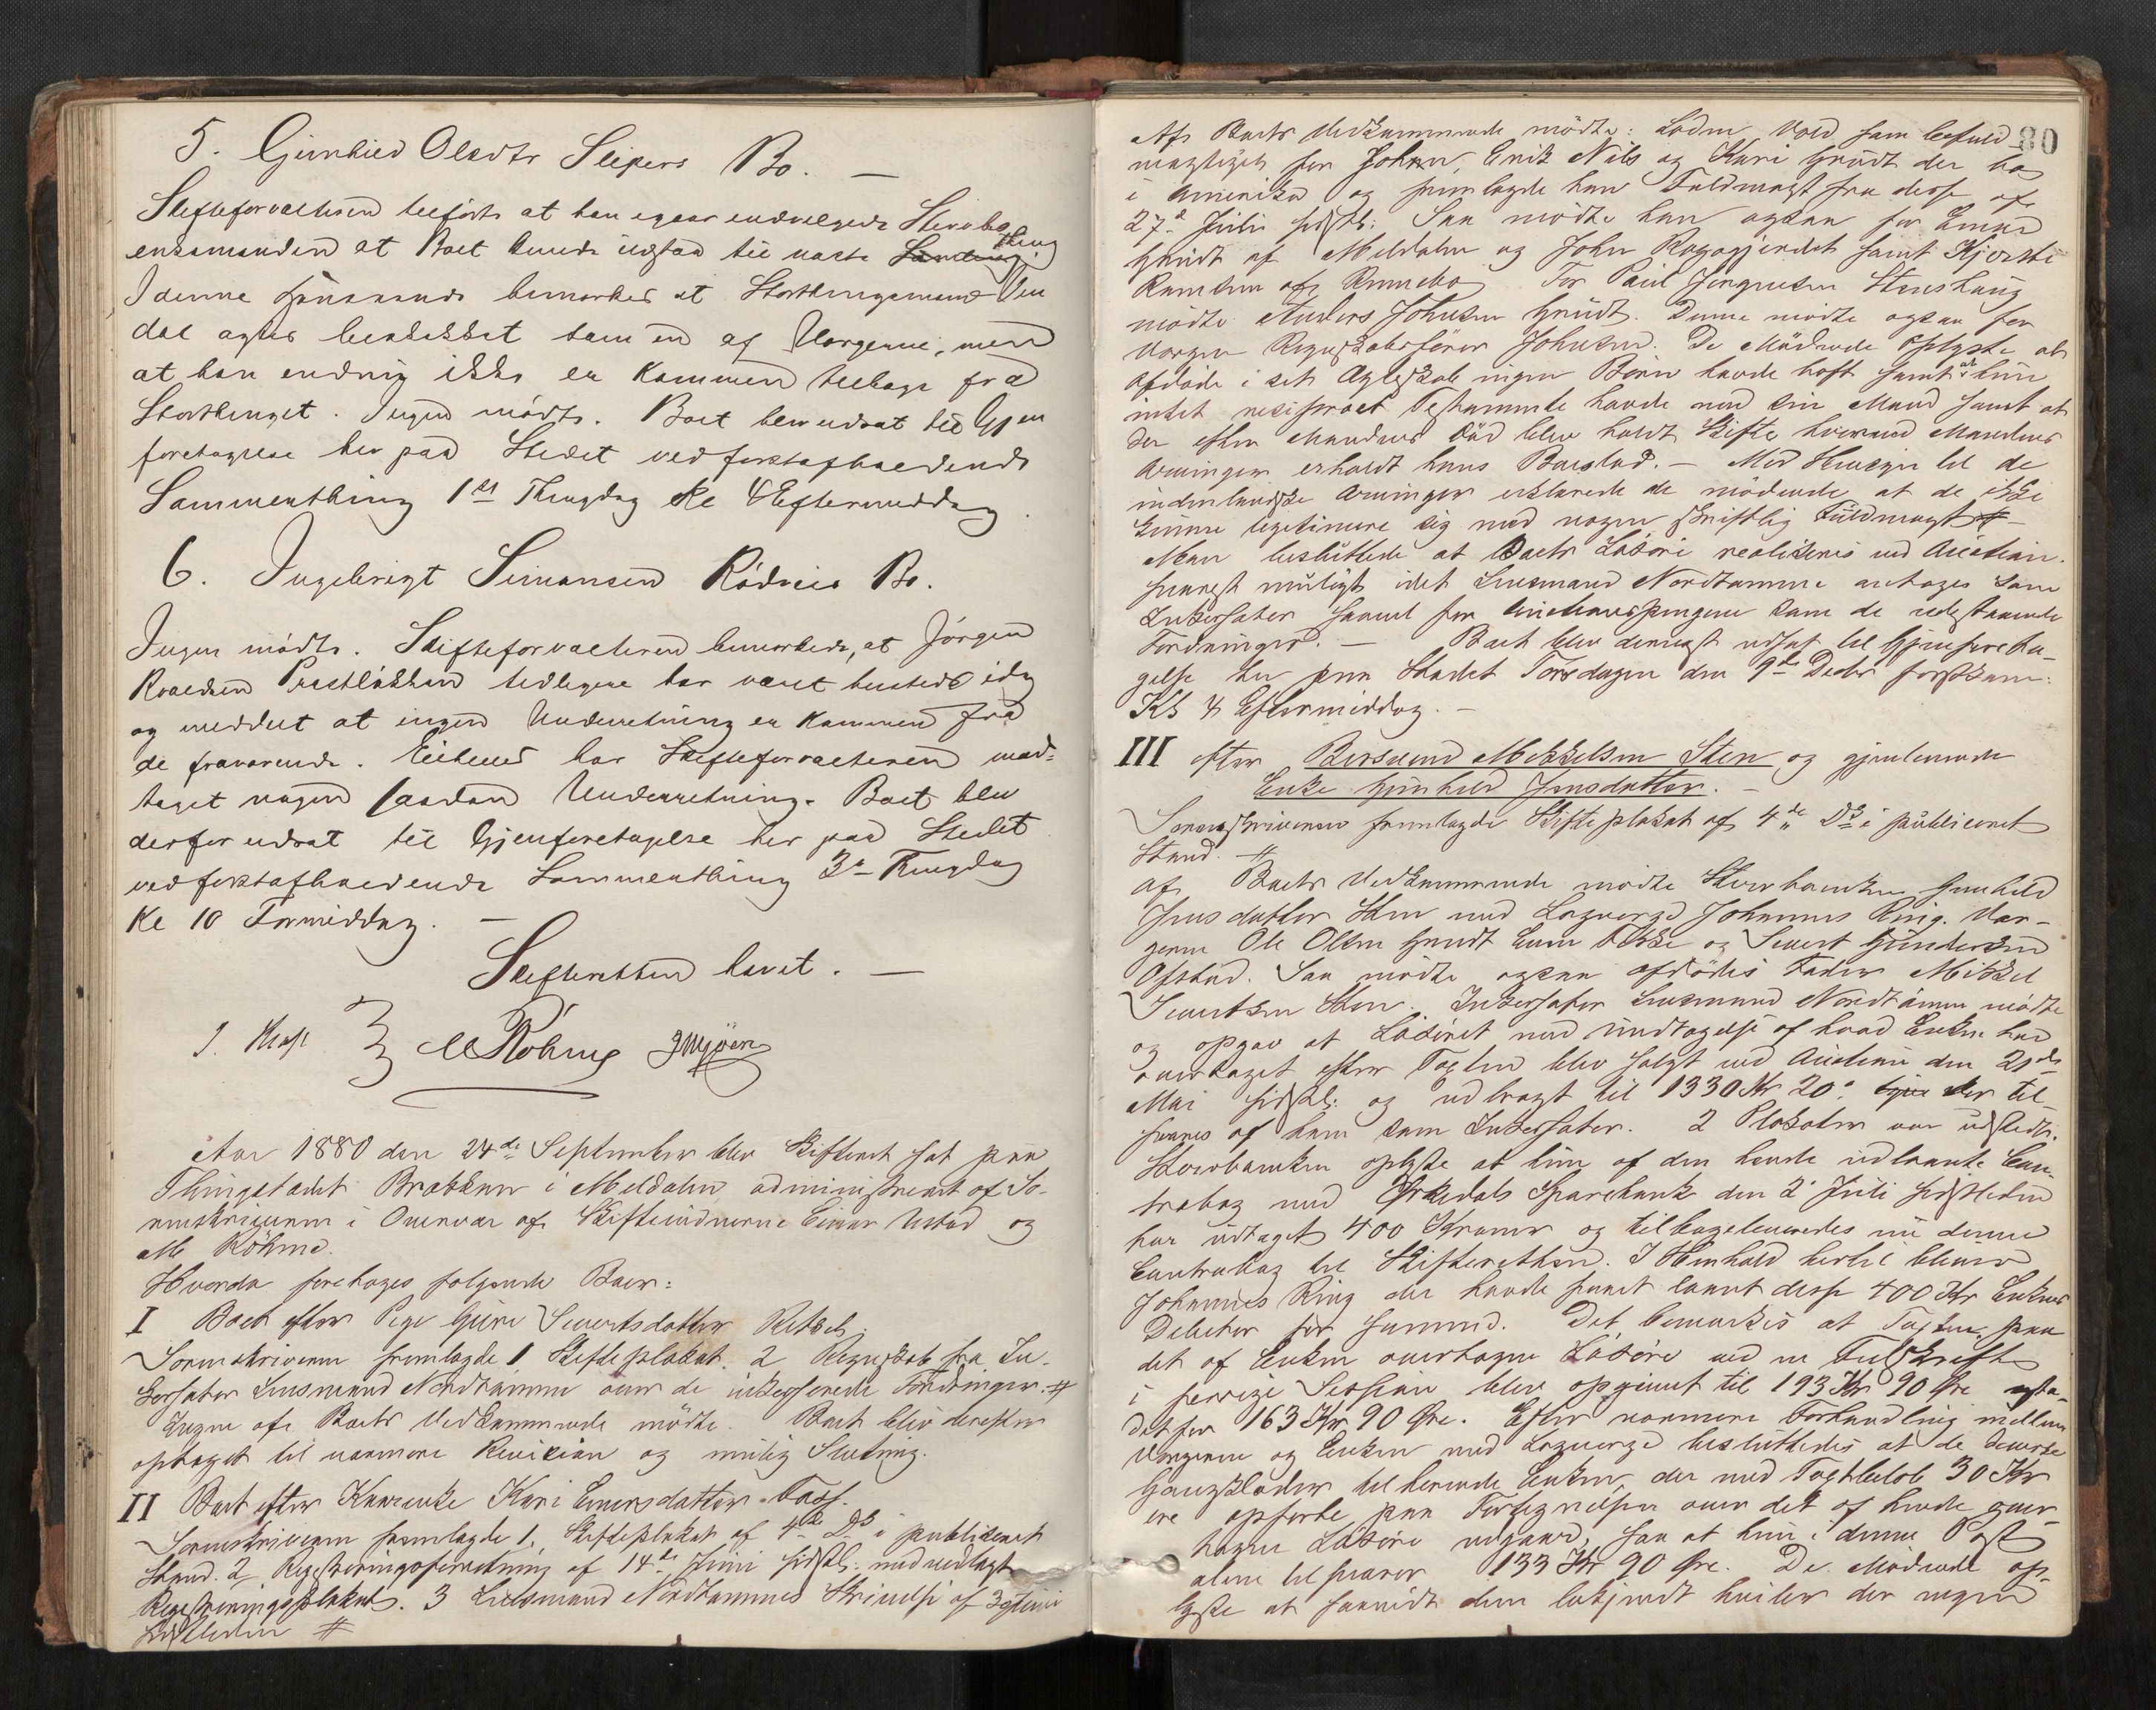 5. Gunhild Olsdtr Slupers Bo. —
Skifteforvalteren tilførte at han igaar underrgede Stervbo
enkemanden at Boet kunde udstaa til næste Thing
I denne Henseende bemærkes at Storthingsmand Ven
dal agtes beskikket som en af Vergerne, men
at han endnu ikke er kommen tilbage fra
Storthinget. Ingen mødte. Boet blev udsat til Gjen
foretagelse her paa Stedet ved førstafholdende
Sommerthing 1ste Thingdag Kl 4 Eftermiddag.
6. Ingebrigt Simonsen Rødsets Bo.
Ingen mødte. Skifteforvalteren bemærkede, at Jörgen
Roaldsen Præstløkken tidligere har været tilstede idag
og meddelt at ingen Underretning er kommen fra
de fraværende. Eiheller har Skifteforvalteren mod-
taget nogen saadan Underretning. Boet blev
derfor udsat til Gjenforetagelse her paa Stedet
ved førstafholdende Sommerthing 3die Thingdag
Kl 10 Formiddag. —
Skifteretten hævet. —
J. MRöhme
Aar 1880 den 24de September blev Skifteret sat paa
Thingstedet Brækken i Meldalen administreret af So-
renskriveren i Overvær af Skiftevidnerne Einar Ustad og
M. Röhme.
Hvorda foretoges følgende Boer:
I Boet efter Pige Guri Sivertsdatter Reitsch.
Sorenskriveren fremlagde 1, Skifteplakat. 2 Regnskab fra In-
kassator Lensmand Nordtømme over de inkasserede Fordringer. #
Ingen af Boets Vedkommende mødte. Boet blev derefter
optaget til nærmere Revision og mulig Slutning.
II Boet efter Kaarenke Kari Einersdatter Foss.
Sorenskriveren fremlagde 1, Skifteplakat af 4de Ds i publiceret
Stand. 2, Registreringsforretning af 14de Juni sidstl. med vedlagt
Registreringsplakat. 3 Lensmand Nordtømmes Skrivelse af 3 Juni
sidstleden #
80
Af Boets Vedkommende mødte: Loden Vold som befuld-
mægtiget for John, Erik Nils og Kari Grudt der bo
i Amerika og fremlagde han Fuldmagt fra disse af
27de Juli sidstl. Saa mødte han ogsaa for Einar
Grudt af Meldalen og John Rogogjerdet samt Kjersti
Ramlien af Rennebo. For Paul Jørgensen Stenshaug
mødte Anders Johnsen Grudt. Denne mødte ogsaa for
Vergen Regnskabsfører Johnsen. De Mødende oplyste at
Afdøde i sit Ægteskab ingen Børn havde havt samt at hun
intet reciproct Testamente havde med sin Mand samt at
der efter Mandens Død blev holdt Skifte hvorved Mandens
Arvinger erholdt hans Boeslod. — Med Hensyn til de
indenlandske Arvinger erklærede de mødende at de ikke
kunne legitimere sig med nogen skriftlig Fuldmagt #
Man besluttede at Boets Løsøre realiseres ved Auction
snarest muligt idet Lensmand Nordtømme antages som
Inkassator saavel for Auctionspengene som de udestaaende
Fordringer. — Boet blev dernæst udsat til Gjenforeta-
gelse her paa Stedet Torsdagen den 9de Decbr førstkom:
Kl 4 Eftermiddag. —
III efter Bersvend Mikkelsen Sten og gjenlevende
Enke Gunhild Jensdatter. —
Sorenskriveren fremlagde Skifteplakat af 4de Ds i publiceret
Stand. #
Af Boets Vedkommende mødte Stervboenken Gunhild
Jensdatter Sten med Lagverge Johannes Ring. Ver-
gerne Ole Olsen Grudt Evens Følke og Sivert Gundersen
Ofstad. Saa mødte ogsaa afdødes Fader Mikkel
Sivertsen Sten. Inkassator Lensmand Nordtømme mødte
og opgav at Løsøret med Undtagelse af hvad Enken har
overtaget efter Taxten blev solgt ved Auction den 21de
Mai sidstl. og udbragt til 1330 Kr 20 der til-
svares af ham som Inkassator. 2 Plakater var udstedt.
Stervboenken oplyste at hun af den hende indlaante Con-
trabog med Orkedals Sparebank den 2 Juli sidstleden
har udtaget 400 Kroner og tilbageleveredes nu denne
Contrabog til Skifteretten. I Henhold hertil bliver
Johannes Ring der havde faaet laant disse 400 Kr Enkens
Debitor for samme. Det bemærkes at Taxten paa
det af Enken overtagne Løsøre ved en Feilskrift
i forrige Session blev opgivet til 193 Kr 90 Øre ista-
detfor 163 Kr 90 Øre. Efter nærmere Forhandling mellem
Vergerne og Enken med Lagverge besluttedes at de diverse
Gangklæder tilhørende Enken, der med Taxtbeløb 30 Kr
ere opførte paa Fortegnelsen over det af hende over-
tagne Løsøre udgaar, saa at hun i denne Post
alene tilsvarer 133 Kr 90 Øre. De Mødende op-
lyste at saavidt dem bekjendt hviler der ingen